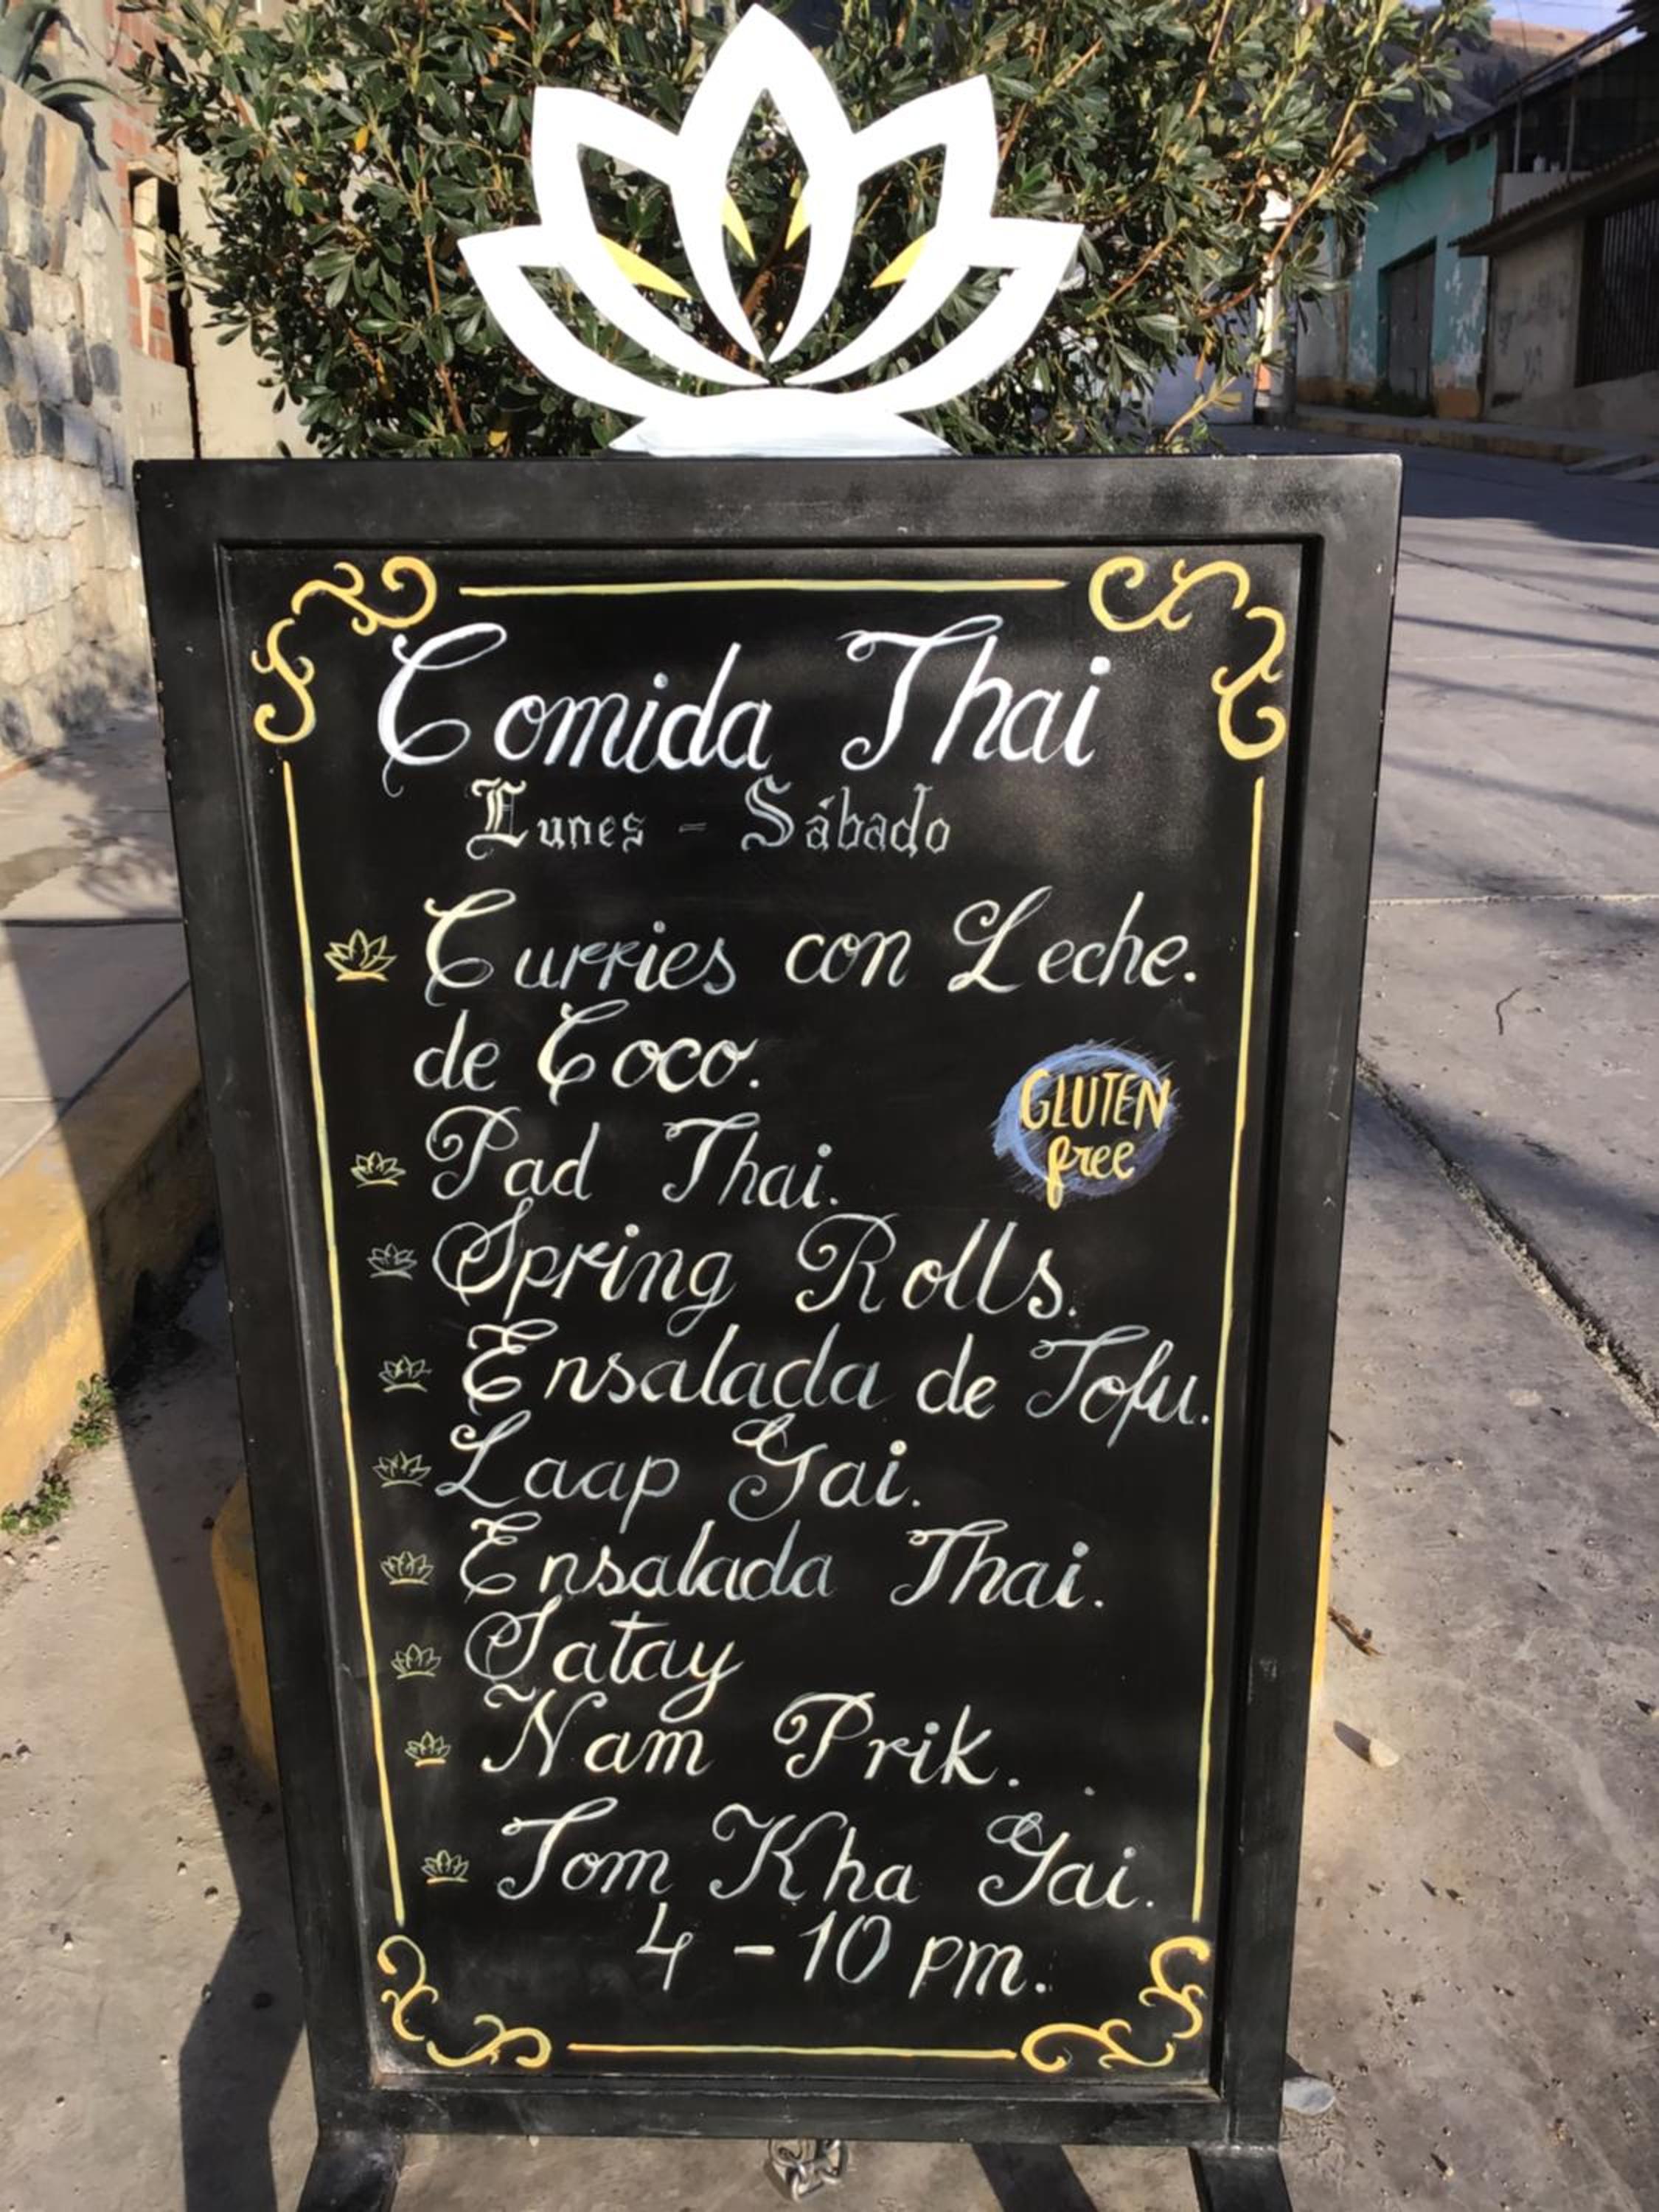 Comida Thai
Lunes - Sábado
Curries con Leche.
de Coco.
GLUTEN
free
Pad Thai.
Spring Rolls.
Ensalada de Tofu.
Laap Gai.
Ensalada Thai.
Satay
Nam Prik.
Tom Kha Gai.
4 - 10 pm.